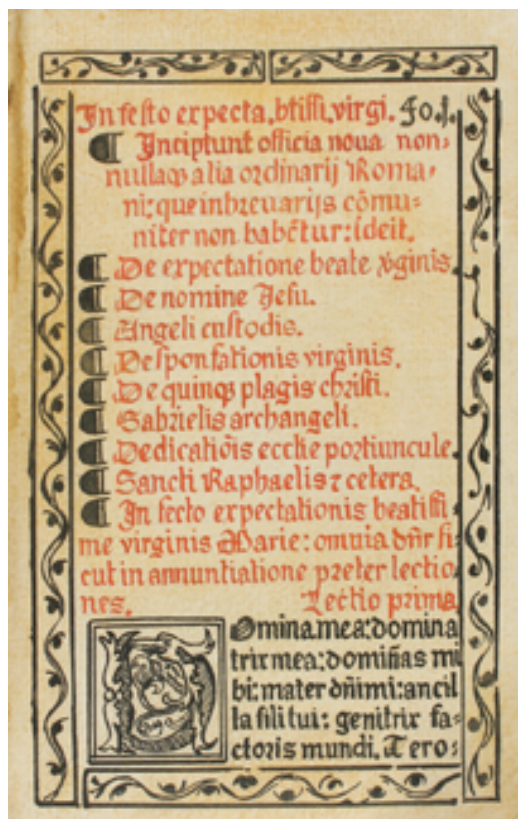 In festo expecta. btissi. virgi. Fo. j.
¶ Incipiunt officia noua non=
nullaqз alia ordinarij Roma=
ni: que in breuarijs cōmu=
niter non habētur: ideit.
¶ De expectatione beate v̄ginis.
¶ De nomine Jesu.
¶ Angeli custodis.
¶ Desponsationis virginis.
¶ De quinqз plagis christi.
¶ Gabrielis archangeli.
¶ Dedicatiōis ecclie portiuncule.
¶ Sancti Raphaelis ⁊ cetera.
¶ In fecto expectationis beatissi
me virginis Marie: omuia dn̄r si
cut in annuntiatione preter lectio
nes. Lectio prima
Domina mea: domina
trix mea: domin̄as mi
hi: mater dn̄i mi: ancil
la fili tui: genitrix fa=
ctoris mundi. Te ro: